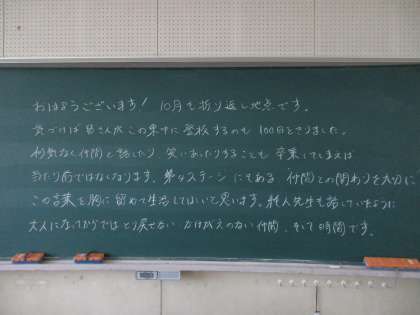 おはようございます! 10月も折り返し地点です。
気づけば皆さんがこの東中に登校するのも100日をきりました。
何気なく仲間と話したり、笑いあったりすることも卒業してしまえば
当たり前ではなくなります。第4ステージにもある、仲間との関わりを大切に
この言葉を胸に留めて生活してほしいと思います。先生も話していたように
大人になってからではとり戻せない かけがえのない仲間、そして時間です。